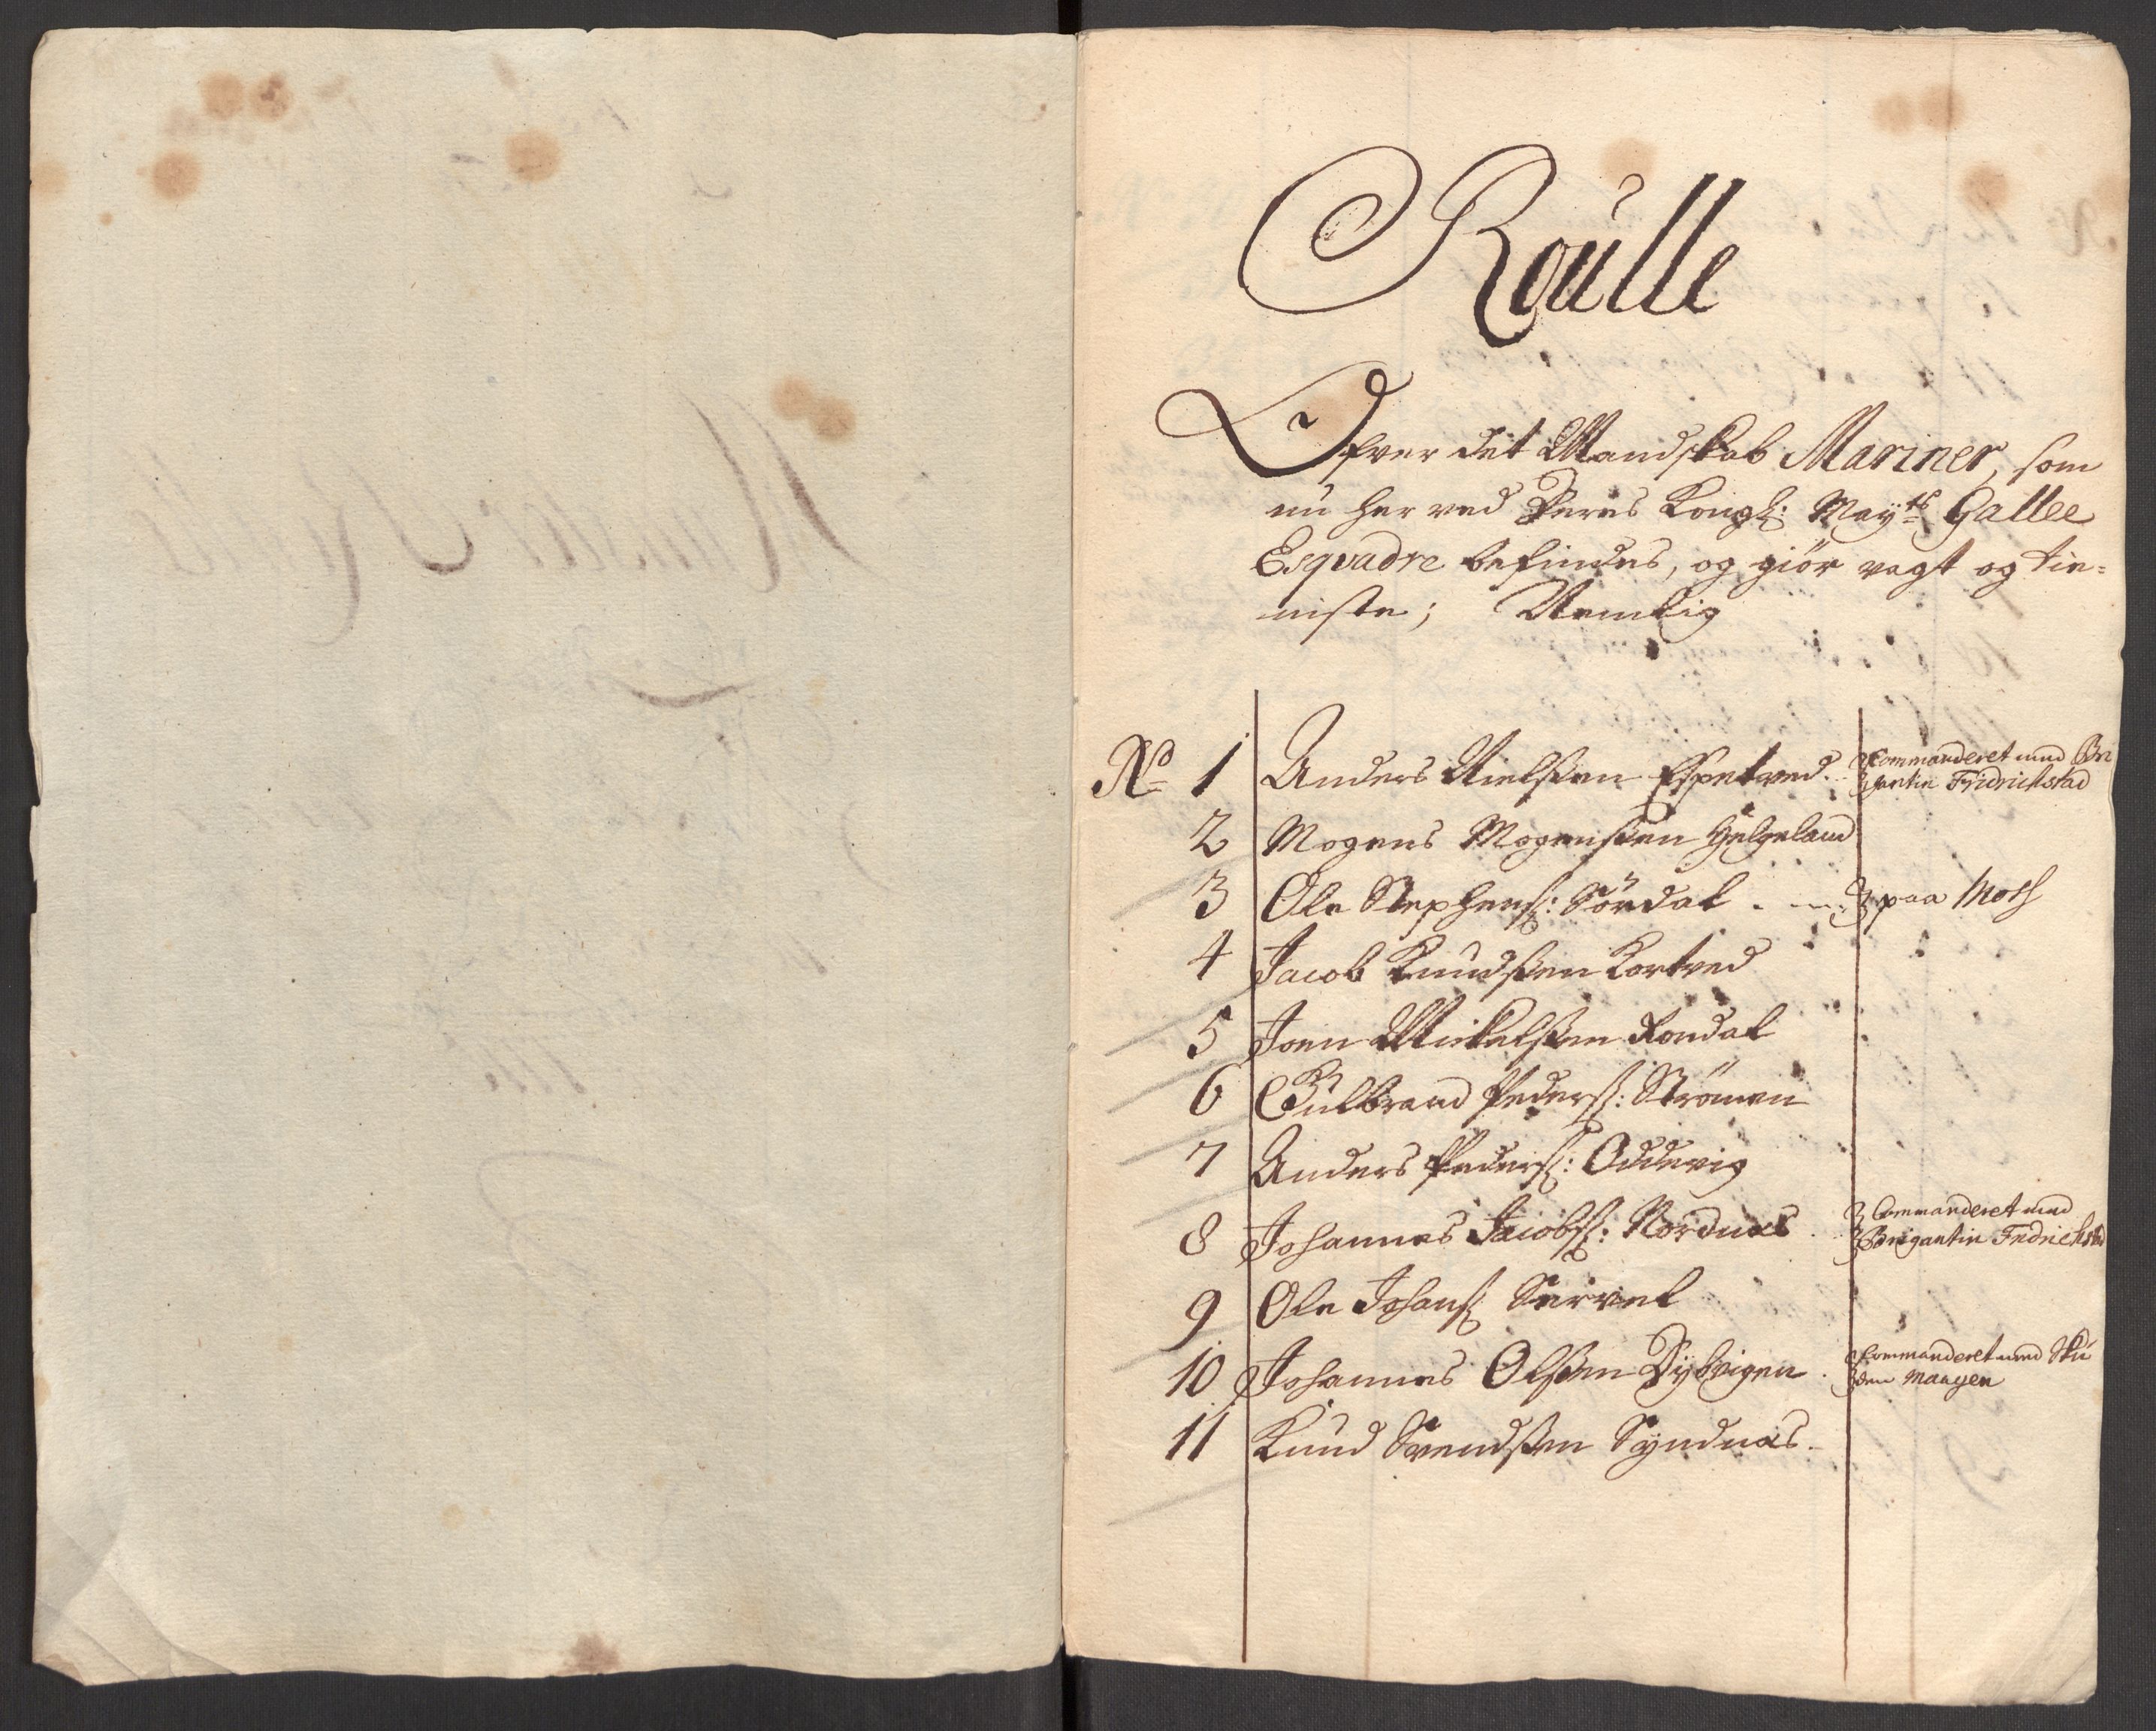 Roulle
Ofver det Mandskab Mariner, som
nu her ved Deres Kongl: Mayts Gallee
Esqvadre befindes, og giör vagt og tie-
niste; Nemlig
No 1 Anders Nielssen Espetved. Commanderet med Bri
gantin Fridrichstad
2 Mogens Mogenssen Helgeland
3 Ole Stephens: Sördal paa Moss
4 Jacob Knudssen Kortved
5 Joen Mickelssen Rondal
6 Gulbrand Peders: Strömen
7 Anders Peders: Oddevig
8 Johannes Jacobs: Nordnæs Commanderet med
Brigantin Fridrichstad
9 Ole Johans: Servel
10 Johannes Olssen Dybvigen. Commanderet med Sku
den Maagen
11 Knud Svendssen Syndnæs.